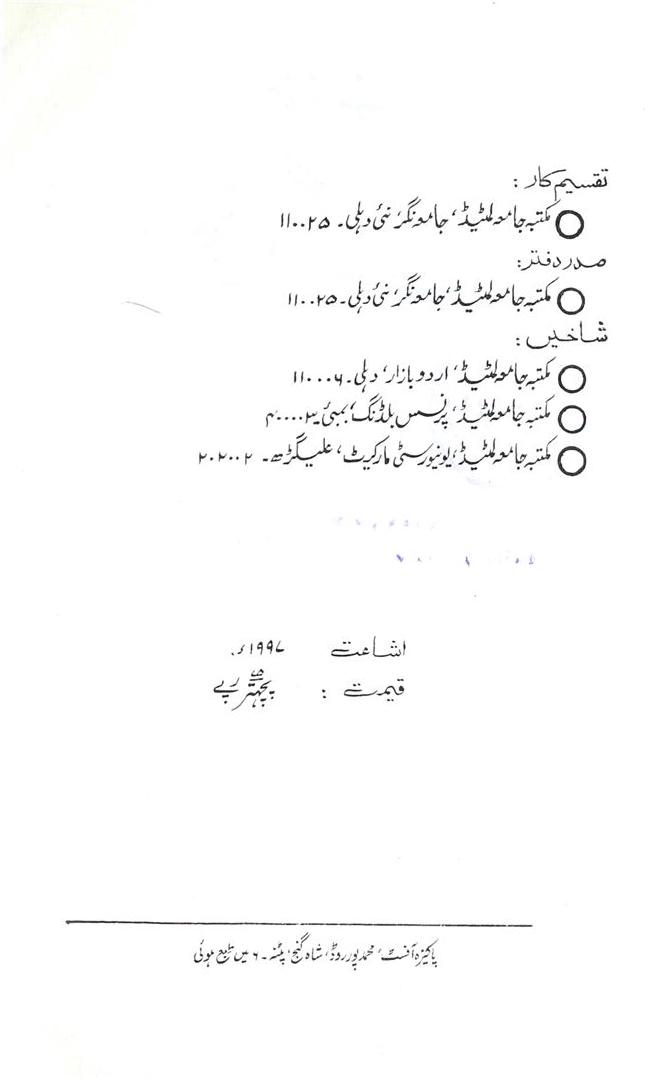 تقسیم کار :
مکتبہ جامعہ لمٹیڈ، جامعہ نگر، نئی دہلی۔ ۱۱۰۰۲۵
صدر دفتر :
مکتبہ جامعہ لمٹیڈ، جامعہ نگر، نئی دہلی۔ ۱۱۰۰۲۵
شاخیں :
مکتبہ جامعہ لمٹیڈ، اردو بازار، دہلی۔ ۱۱۰۰۰۶
مکتبہ جامعہ لمٹیڈ، پرنسس بلڈنگ، بمبئی ۴۰۰۰۰۳
مکتبہ جامعہ لمٹیڈ، یونیورسٹی مارکیٹ، علیگڑھ۔ ۲۰۲۰۰۲
اشاعت ۱۹۹۷ء
قیمت : پچہتر روپے
پاکیزہ آفسٹ، محمد پور روڈ، شاہ گنج، پٹنہ۔ ۶ میں طبع ہوئی